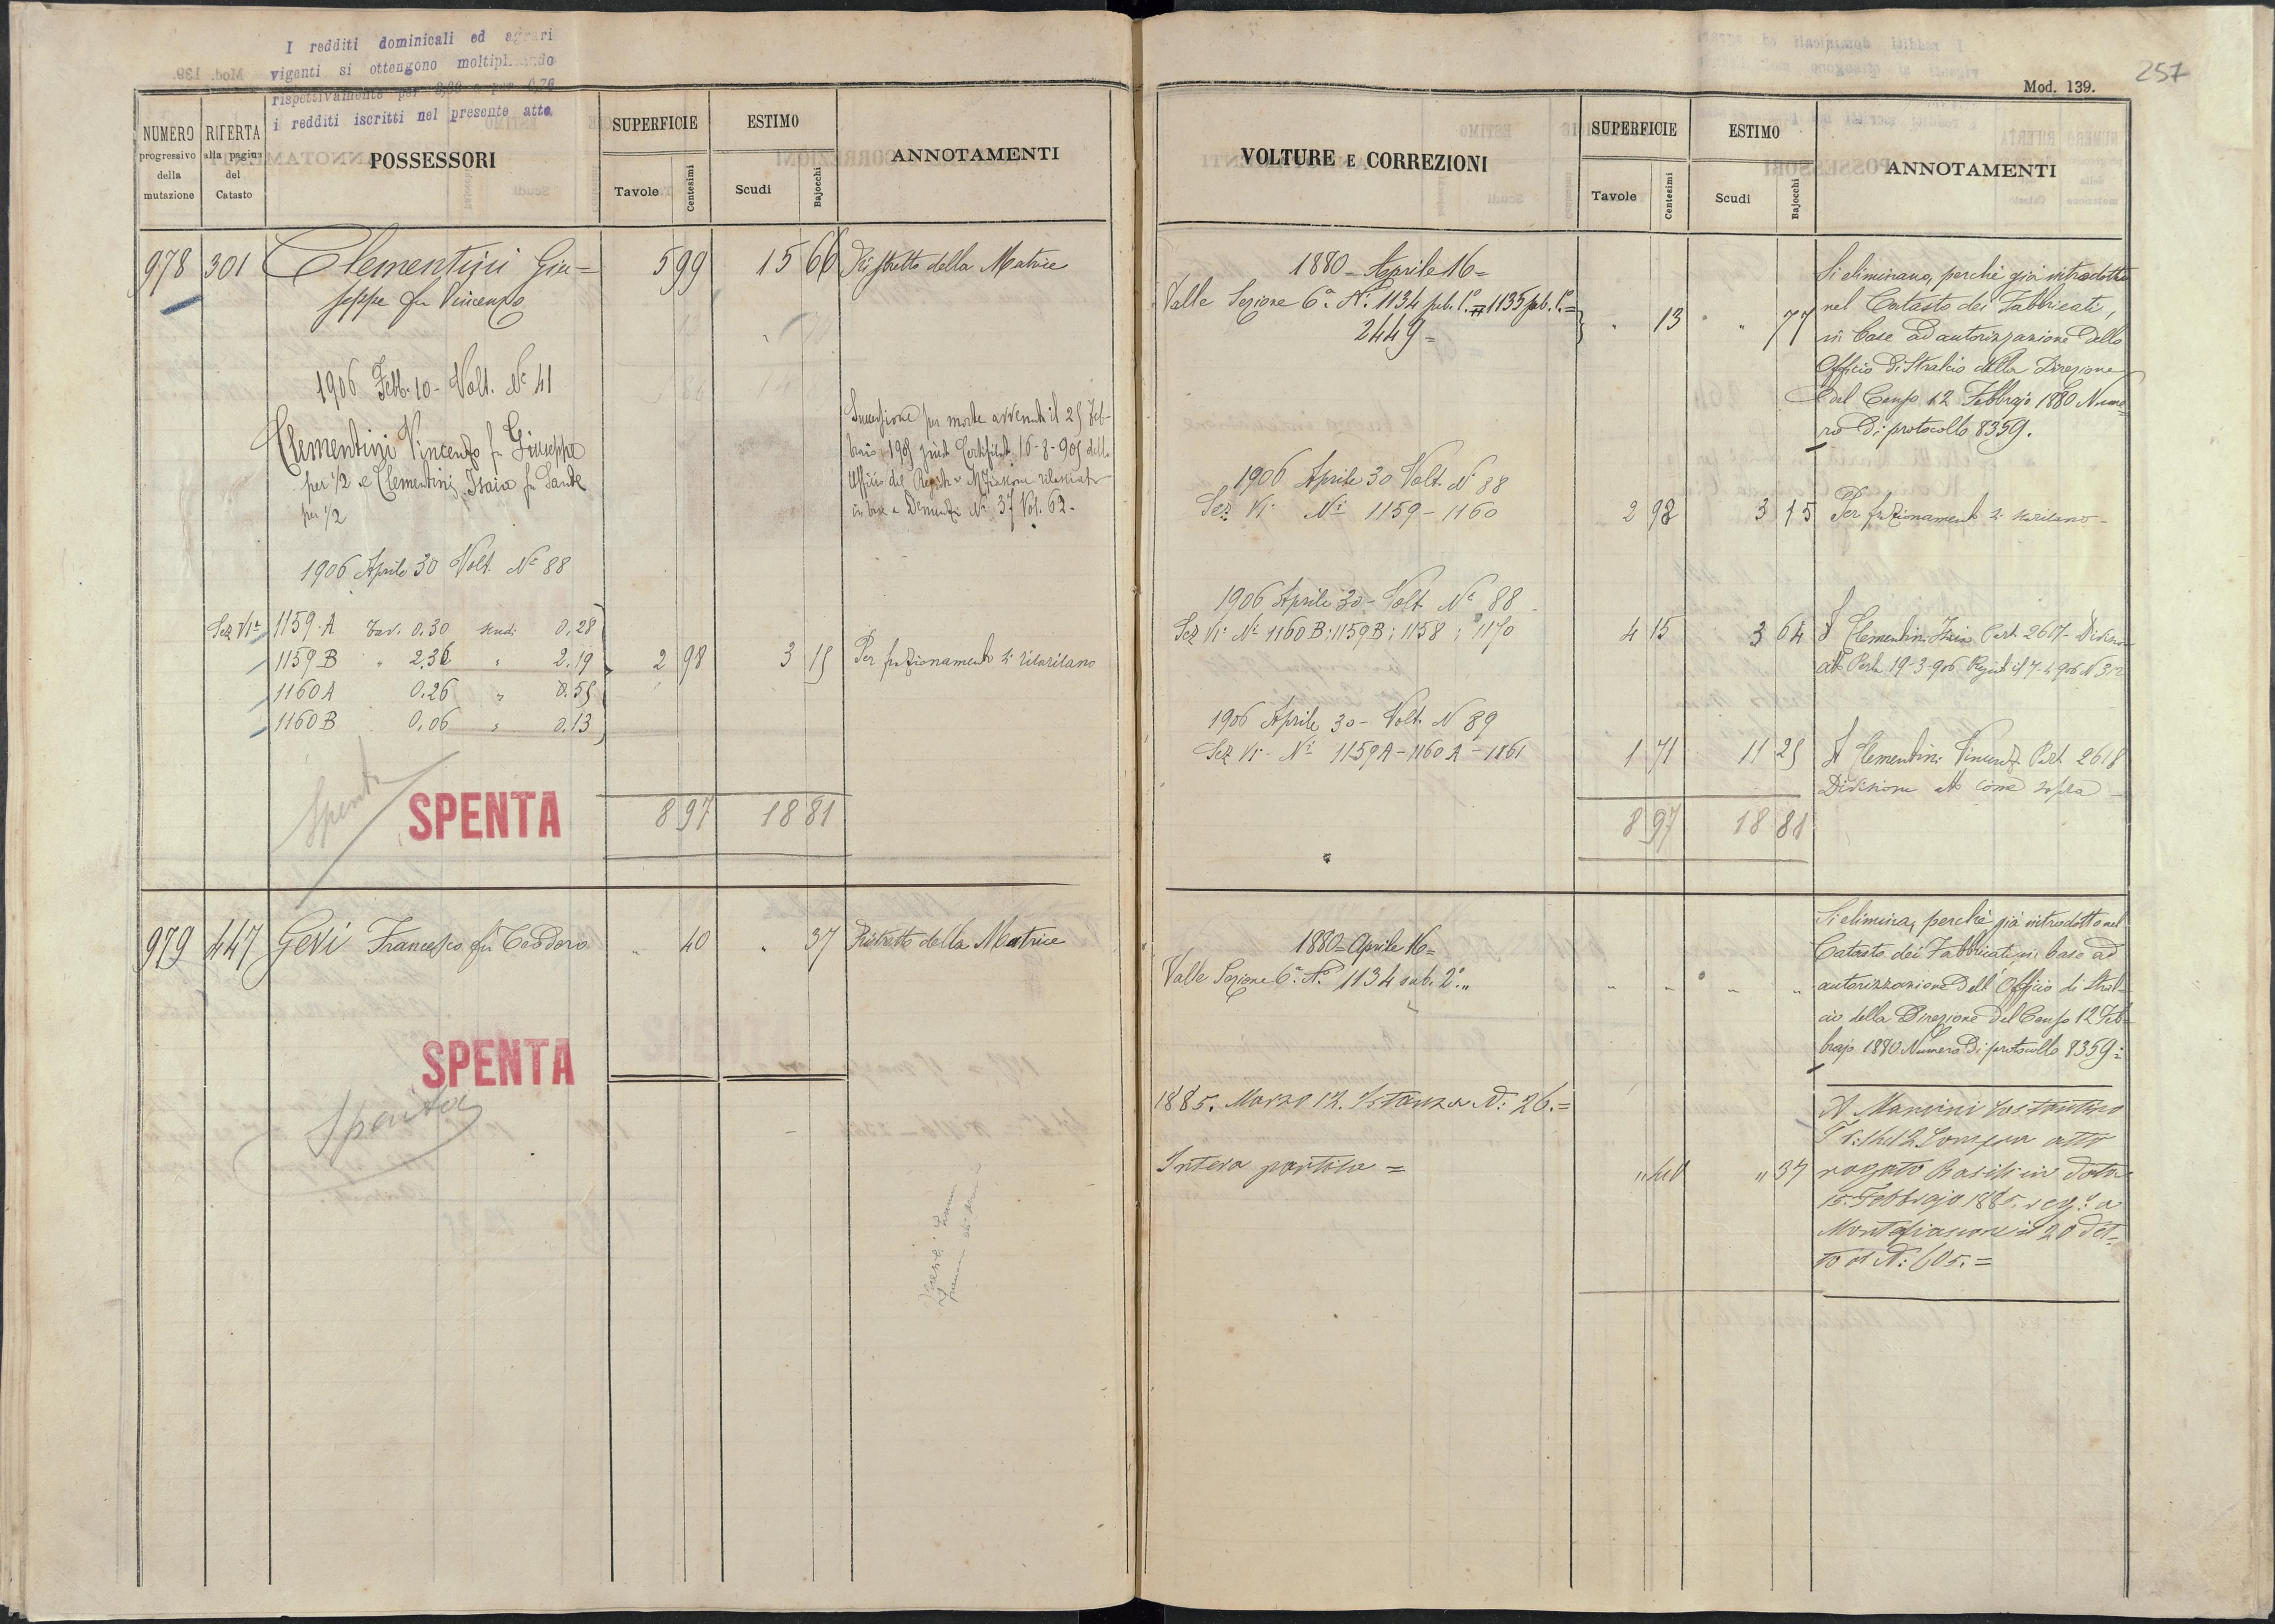 I redditi dominicali ed agrari
vigenti si ottengono moltiplicando
rispettivamente per
i redditi iscritti nel presente atto.
NUMERO
progressivo
della
mutazione
RIFERTA
alla pagina
del
Catasto
POSSESSORI
SUPERFICIE
Tavole
Centesimi
ESTIMO
Scudi
Bajocchi
ANNOTAMENTI
978 301 Clementini Giu= 5 99 15 66 Ristretto della Matrice
seppe fu Vincenzo
1906 Febb. 10 - Volt. N° 41
Clementini Vincenzo fu Giuseppe
per 1/2 e Clementini Isaia fu Sante
per 1/2
Successione per morte avvenuta il 25 Feb-
braio 1905 giusta Certificato 16-8-905 dello
Ufficio del Registro M.Fiascone rilasciato
in base a Denunzia N° 37 Vol. 62-
1906 Aprile 30 Volt. N° 88
Sez VIa 1159 A Tav. 0.30 scudi 0.28
1159 B " 2.36 " 2.19
1160 A 0.26 " 0.55
1160 B 0.06 " 0.13
2 98 3 15 Per frazionamento si ricaricano
Spenta
SPENTA
8 97 18 81
979 447 Gevi Francesco fu Teodoro " 40 " 37 Ristretto della Matrice
SPENTA
Spenta
257
Mod. 139.
VOLTURE E CORREZIONI
SUPERFICIE
Tavole
Centesimi
ESTIMO
Scudi
Bajocchi
ANNOTAMENTI
1880 = Aprile 16 =
Valle Sezione 6a. N.i 1134 sub. 1° = 1135 sub. 1° =
2449 =
" 13 " 77
Si eliminano, perchè già introdotti
nel Catasto dei Fabbricati,
in base ad autorizzazione dello
Officio di Stralcio della Direzione
del Censo 12 Febbrajo 1880 Nume-
ro di protocollo 8359.
1906 Aprile 30 Volt. N° 88
Sez. VI. N.i 1159 - 1160 2 98 3 15 Per frazionamento si scaricano -
1906 Aprile 30 - Volt. N° 88
Sez VI. N.i 1160 B; 1159 B; 1158; 1170 4 15 3 64 A Clementini Isaia Part. 2617 - Divisione
atto 19-3-906 Regist. il 7-4-906 N 312
1906 Aprile 30 - Volt. N 89
Sez VI. N.i 1159 A - 1160 A - 1161 1 71 11 25 A Clementini Vincenzo Part. 2618
Divisione atto come sopra -
8 97 18 81
1880 = Aprile 16 =
Valle Sezione 6a. N.o 1134 sub. 2°. "
Si elimina, perchè già introdotto nel
Catasto dei Fabbricati, in base ad
autorizzazione dell' Officio di Stral-
cio della Direzione del Censo 12 Feb-
brajo 1880 Numero di protocollo 8359 =
1885. Marzo 12. Istanza N: 26. =
Intera partita = " 40 " 37
A Mancini Costantino
Compera atto
rogato Basili in data
15. Febbrajo 1885. reg.o a
Montefiascone il 20 det-
to al N: 605. =